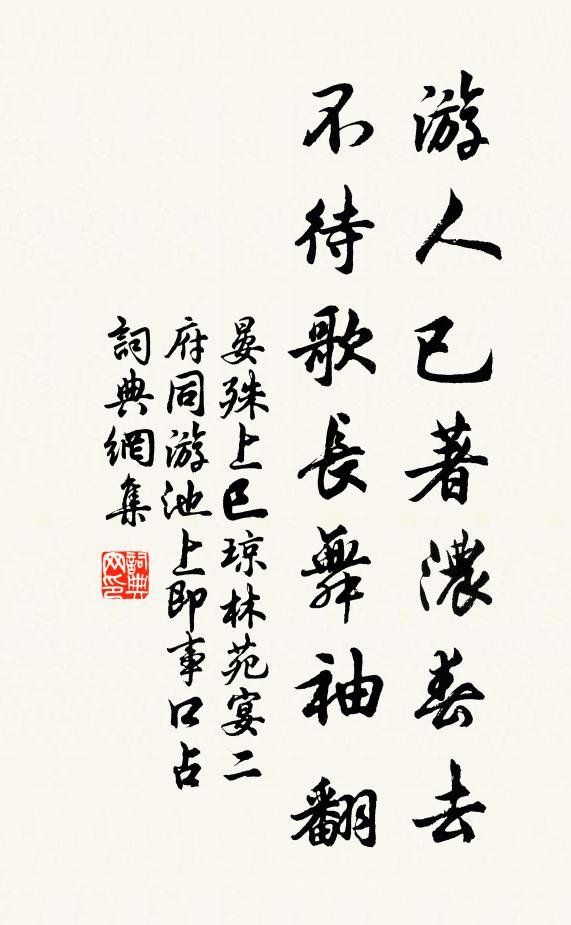 游人已著濃春去
不待歌長舞袖翻
晏殊上巳瓊林苑宴二
府同游池上即事口占
詞典網集
詞典
网印